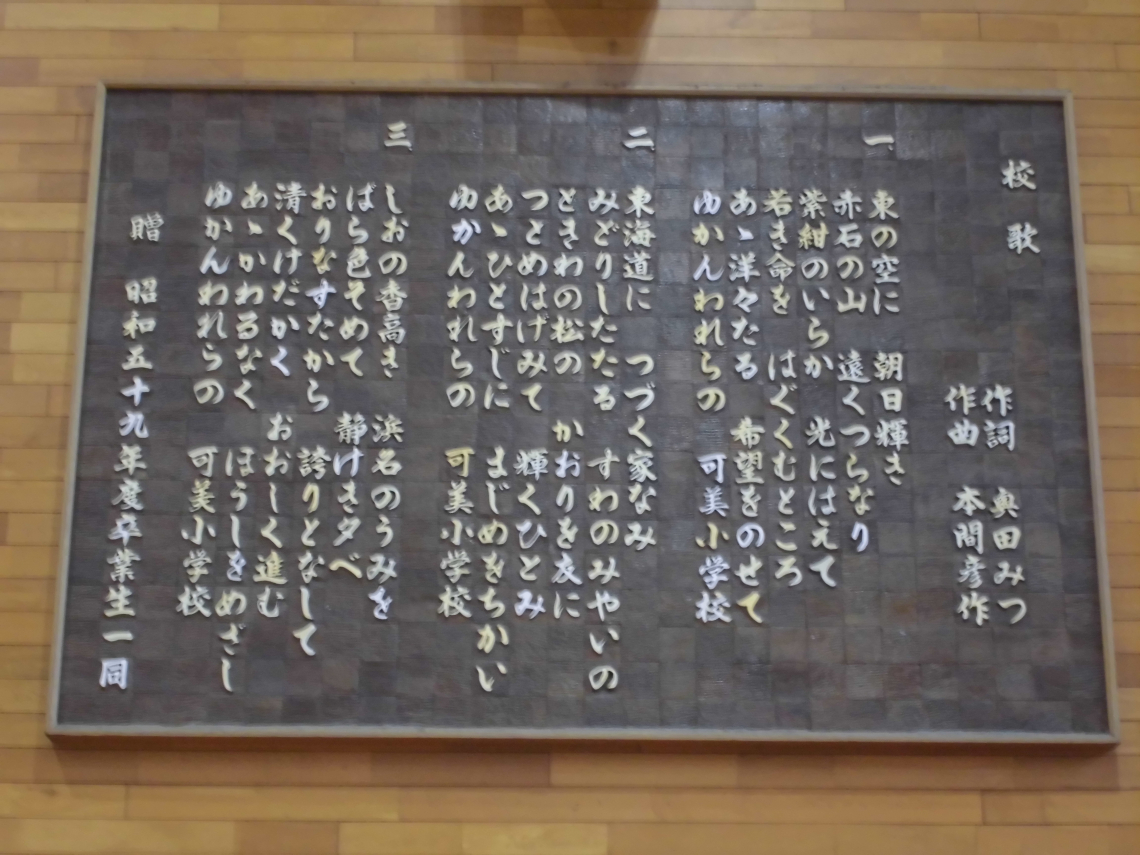 校歌
作詞 奥田みつ
作曲 本間彦作
一
東の空に 朝日輝き
赤石の山 遠くつらなり
紫紺のいらか 光にはえて
若き命を はぐくむところ
あゝ洋々たる 希望をのせて
ゆかんわれらの 可美小学校
二
東海道に つづく家なみ
みどりしたたる すわのみやいの
ときわの松の かおりを衣に
つとめはげみて 輝くひとみ
あゝひとすじに まじめをちかい
ゆかんわれらの 可美小学校
三
しおの香高き 浜名のうみを
ばら色そめて 静けき夕べ
おりなすたから 誇りとなして
清くけだかく おおしく進む
あゝかわるなく ほうしをめざし
ゆかんわれらの 可美小学校
贈 昭和五十九年度卒業生一同